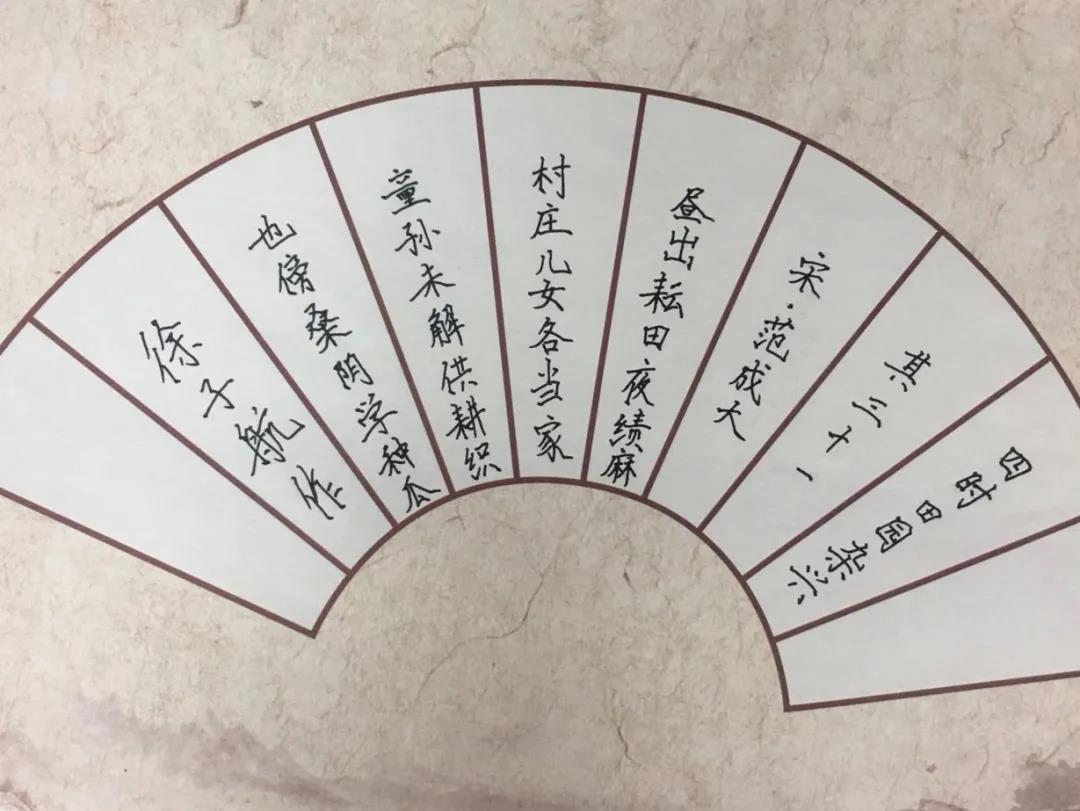 四时田园杂兴
其三十一
宋·范成大
昼出耘田夜绩麻
村庄儿女各当家
童孙未解供耕织
也傍桑阴学种瓜
徐子航作